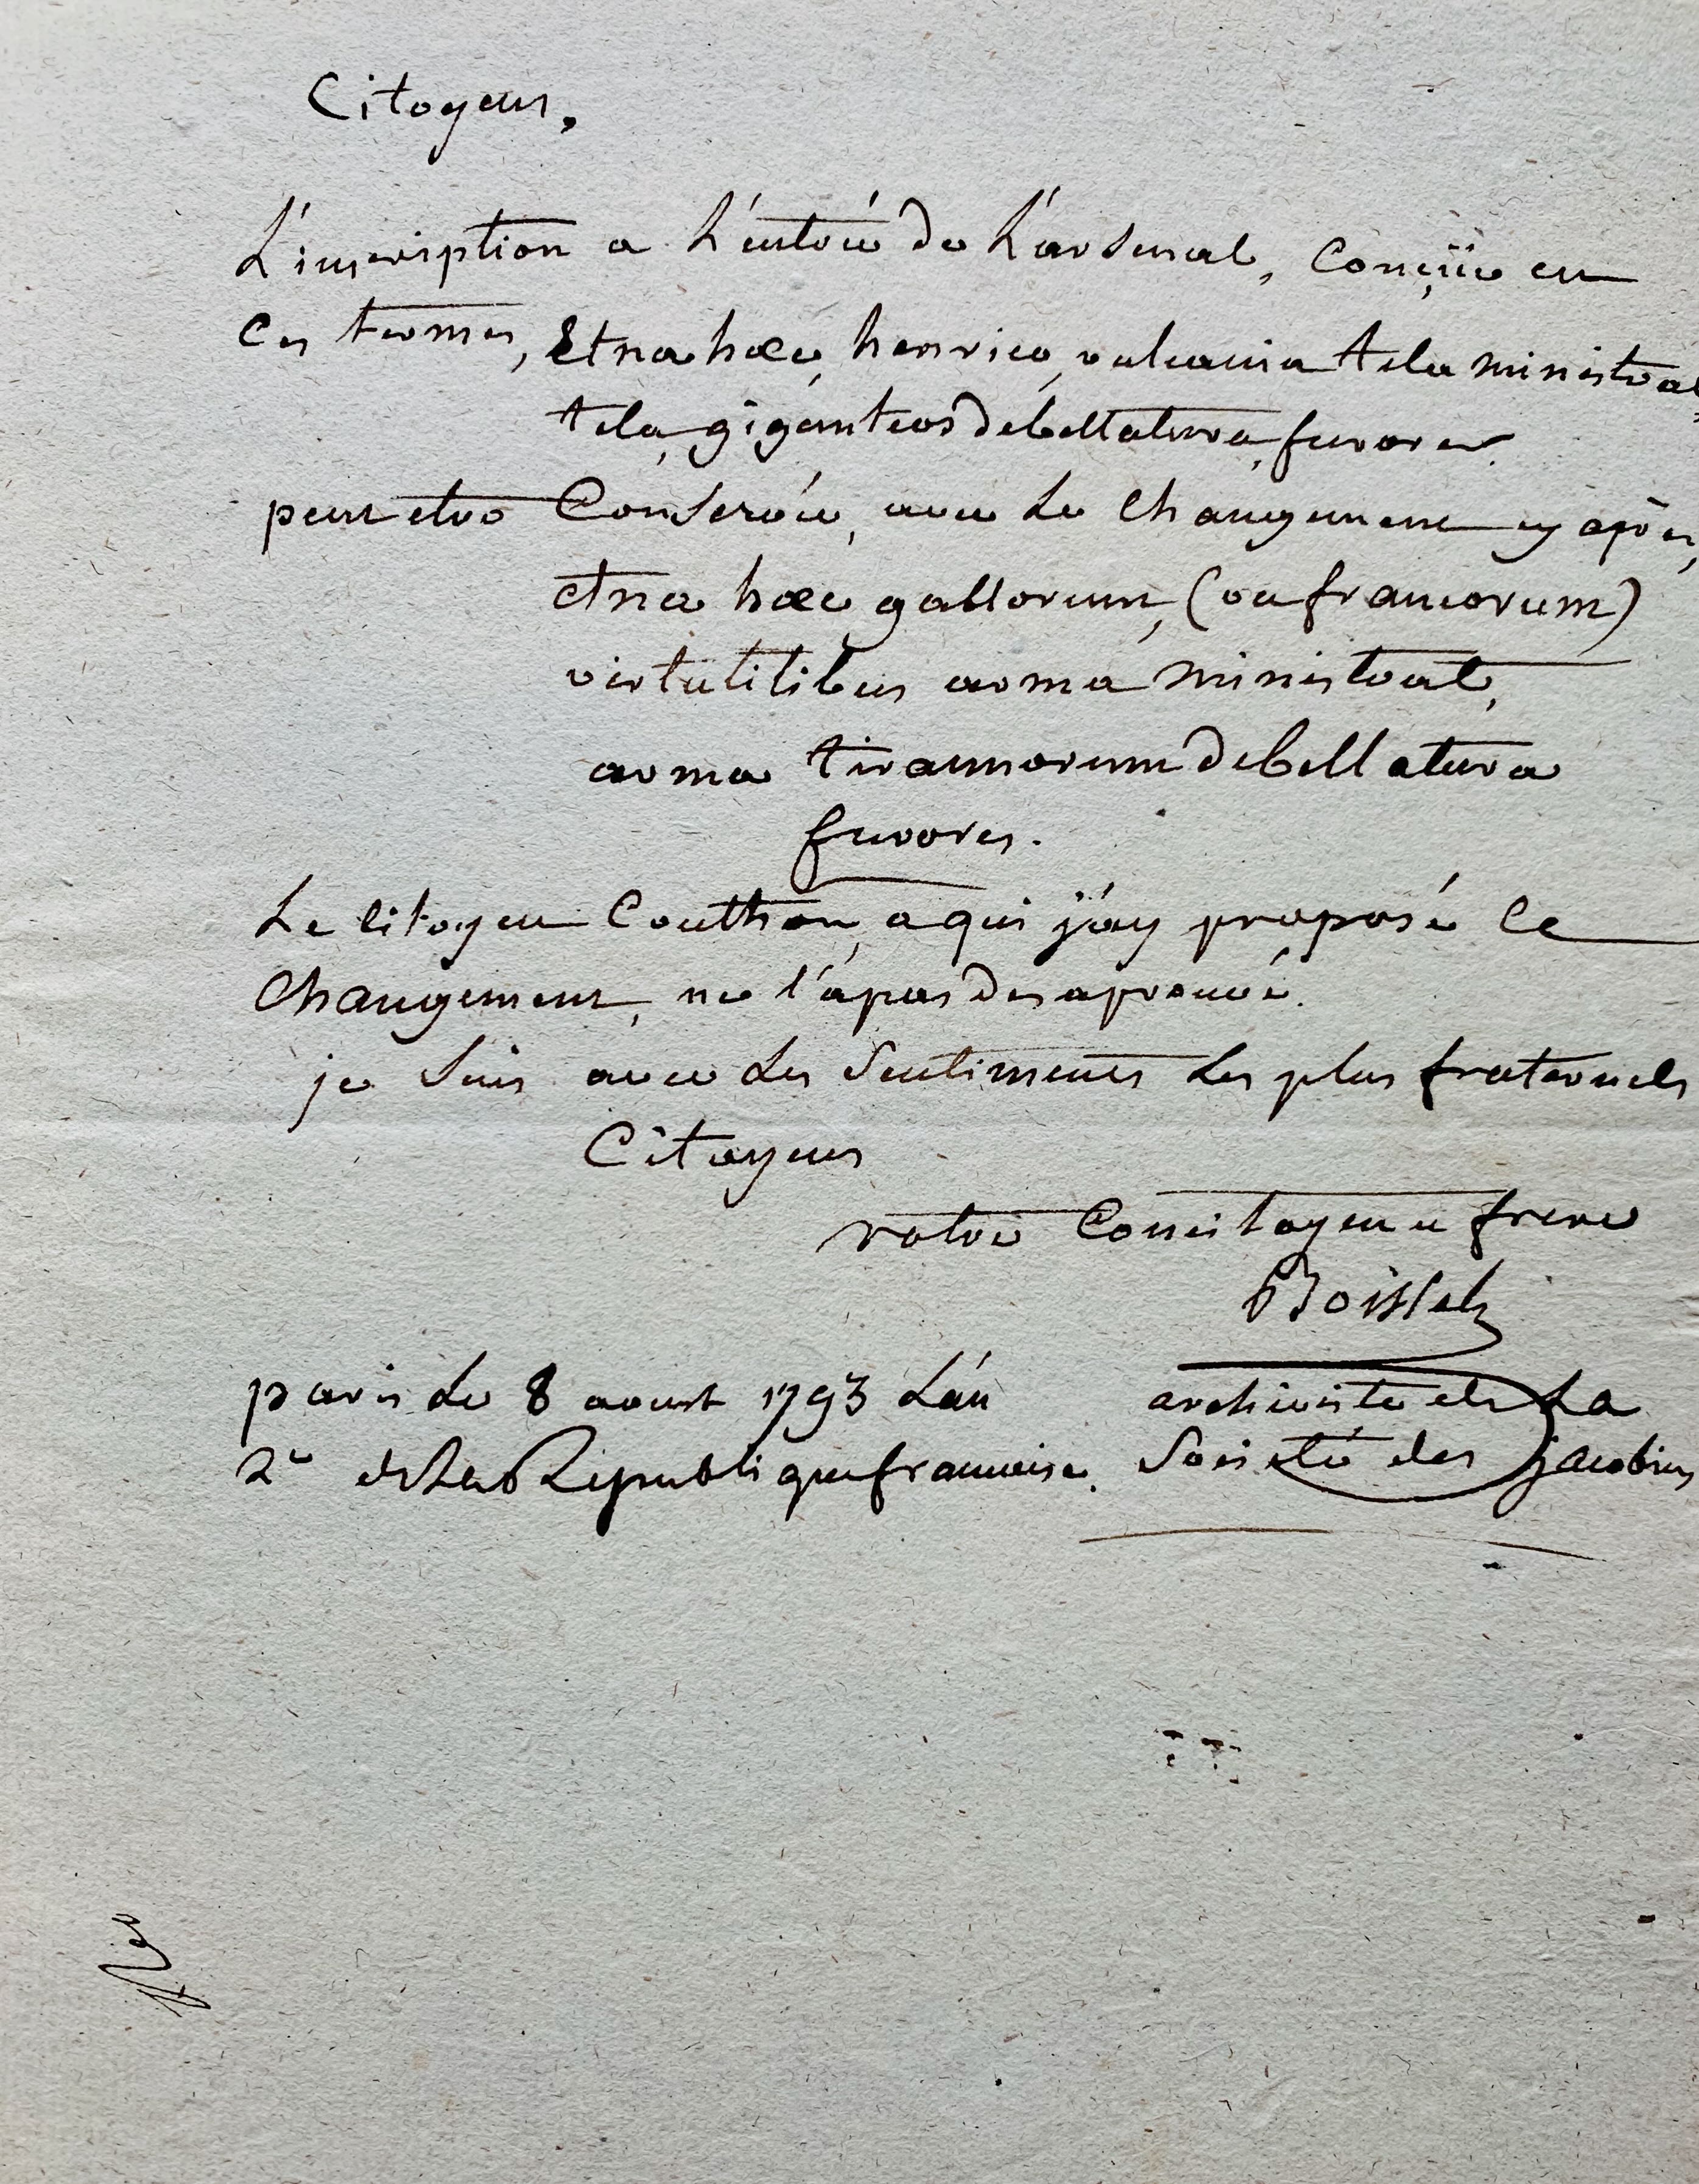 Citoyens,
L'inscription a L'entrée de L'arsenal, Conçüe en
Ces termes, Etna hæc, henrico, vulcania tela ministrat,
tela, giganteos debellatura, furores.
peut etre Conservée, avec Le Changement cy après,
etna hæc gallorum, (ou francorum)
virtutitibus arma ministrat,
arma tirannorum debellatura
furores.
Le Citoyen Couthon, a qui j'ay proposé Ce
Changement, ne l'a pas desaprouvé.
je suis avec des sentiments Les plus fraternels
Citoyens
votre Concitoyen u frere
Boissel
paris Le 8 aoust 1793 L'an
archiviste de La
2e de La Republique francoise.
Societé des jacobins